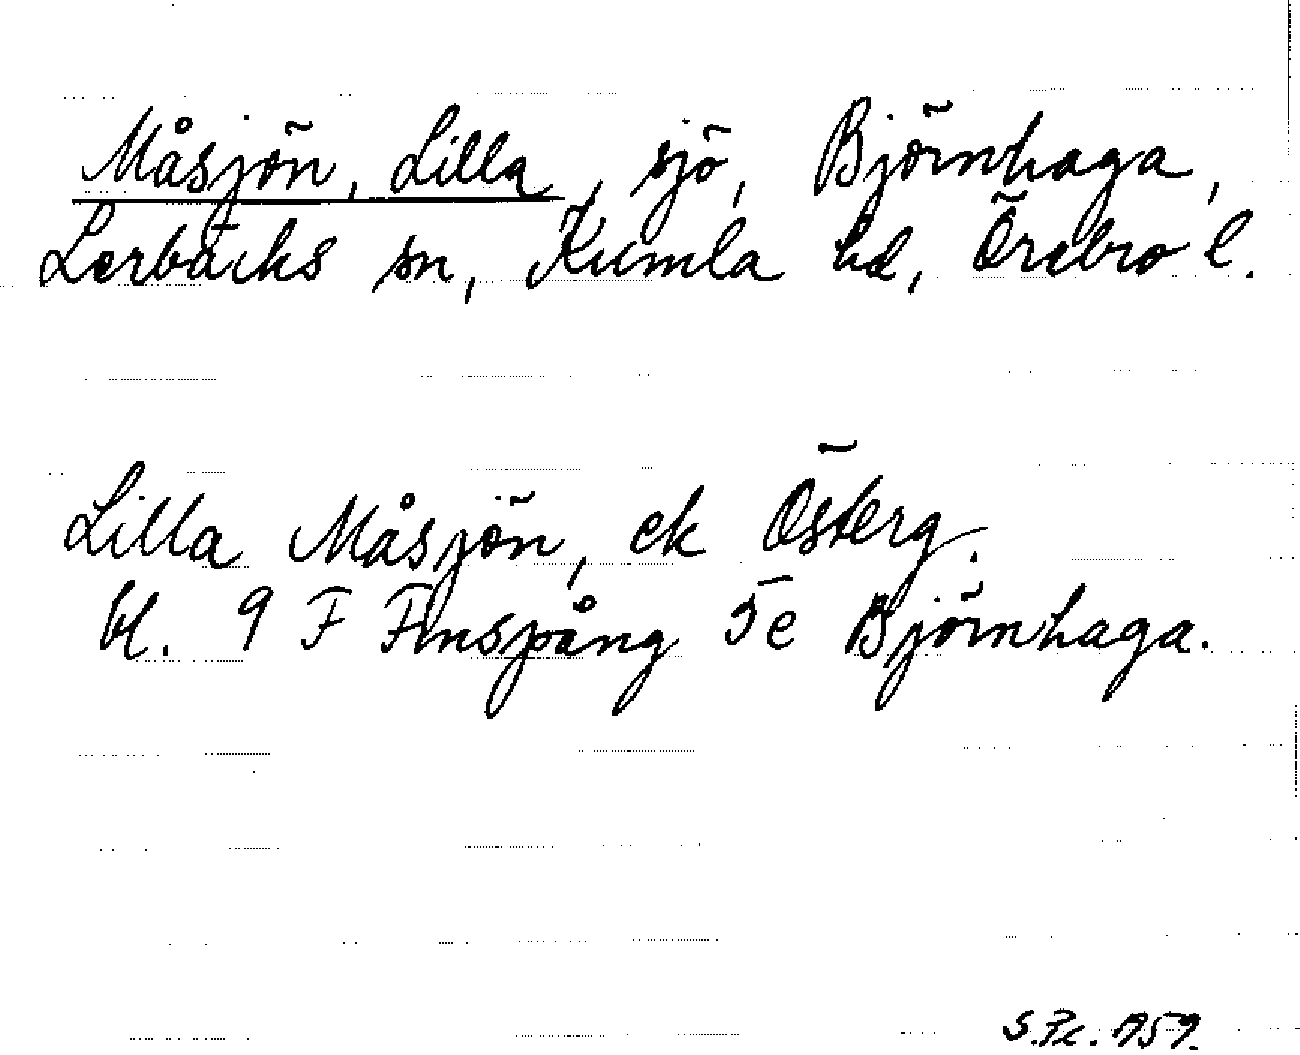 Måsjön, Lilla, sjö, Björnhaga,
Lerbäcks sn, Kumla hd, Örebro l.
Lilla Måsjön, ek Österg.
bl. 9 F Finspång 5e Björnhaga.
1959.